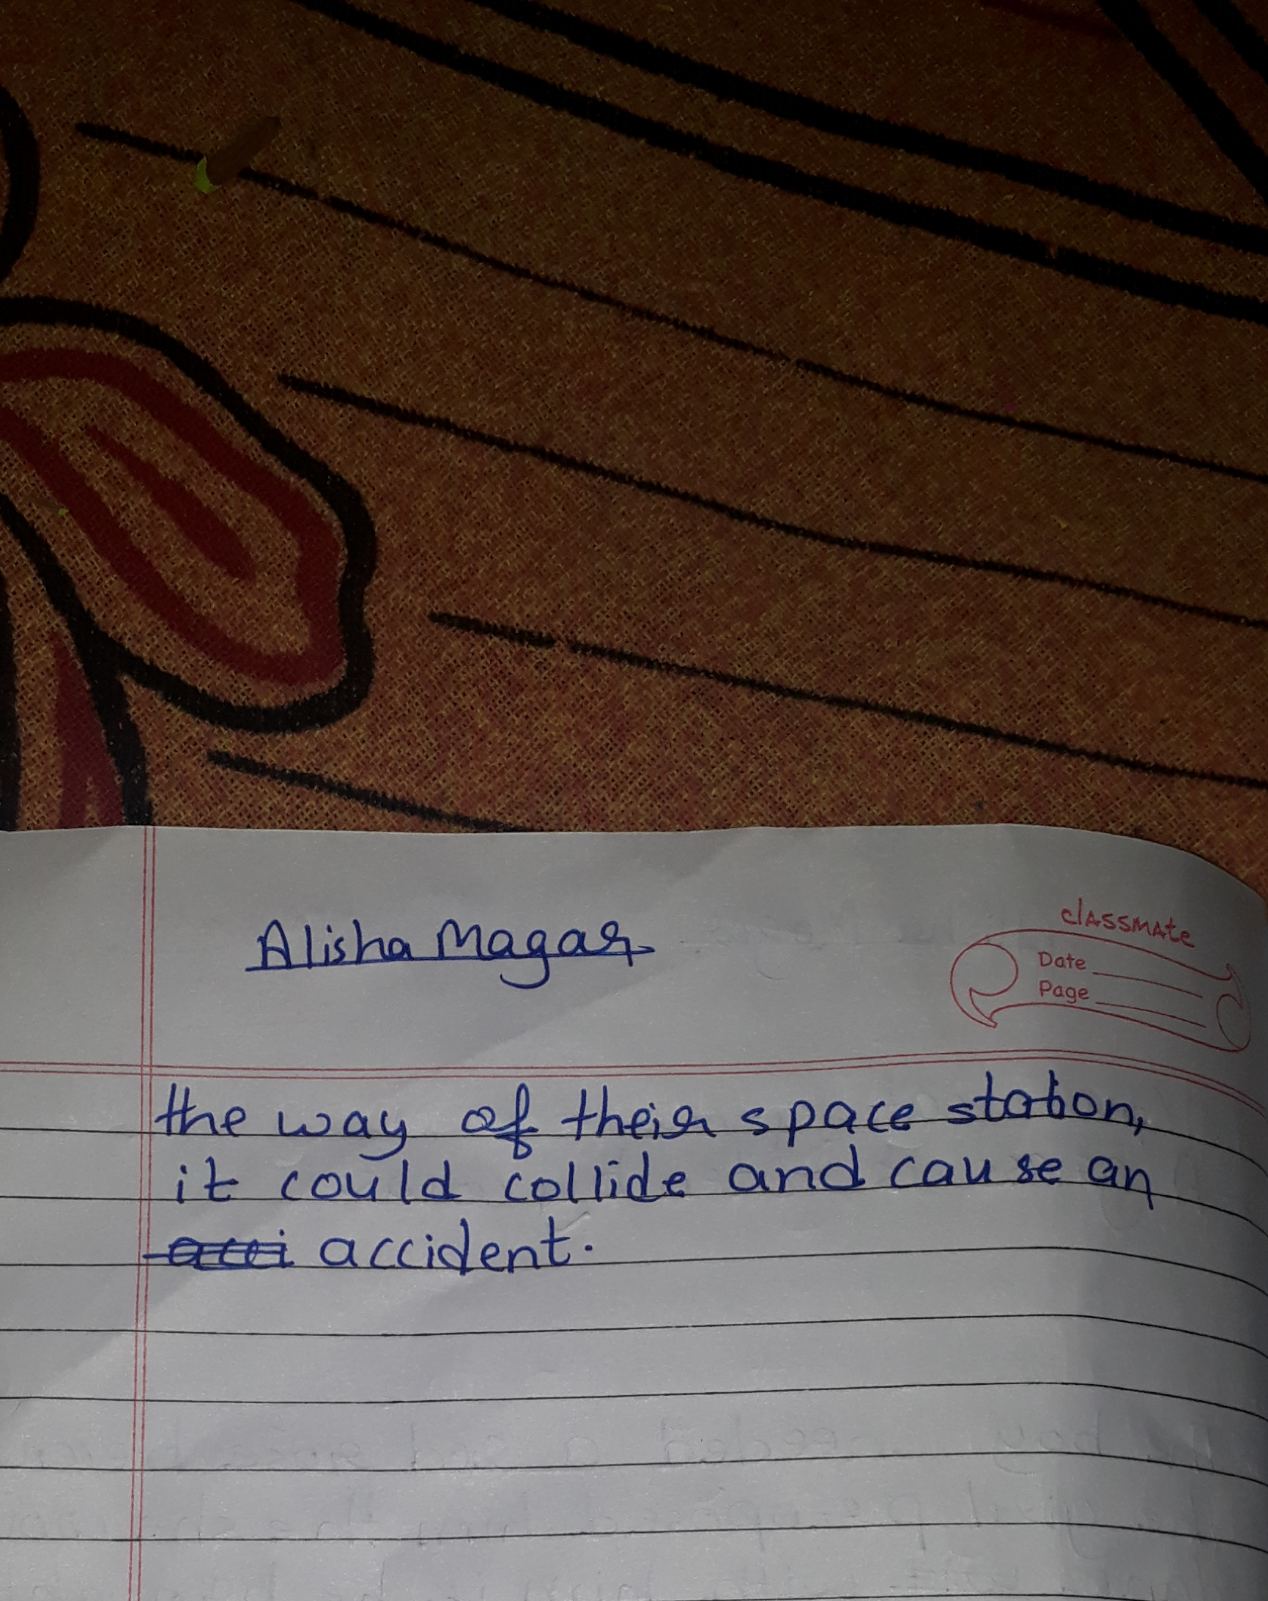 Alisha Magar
classmate
Date
Page
the way of their space station,
it could collide and cause an
acci accident.